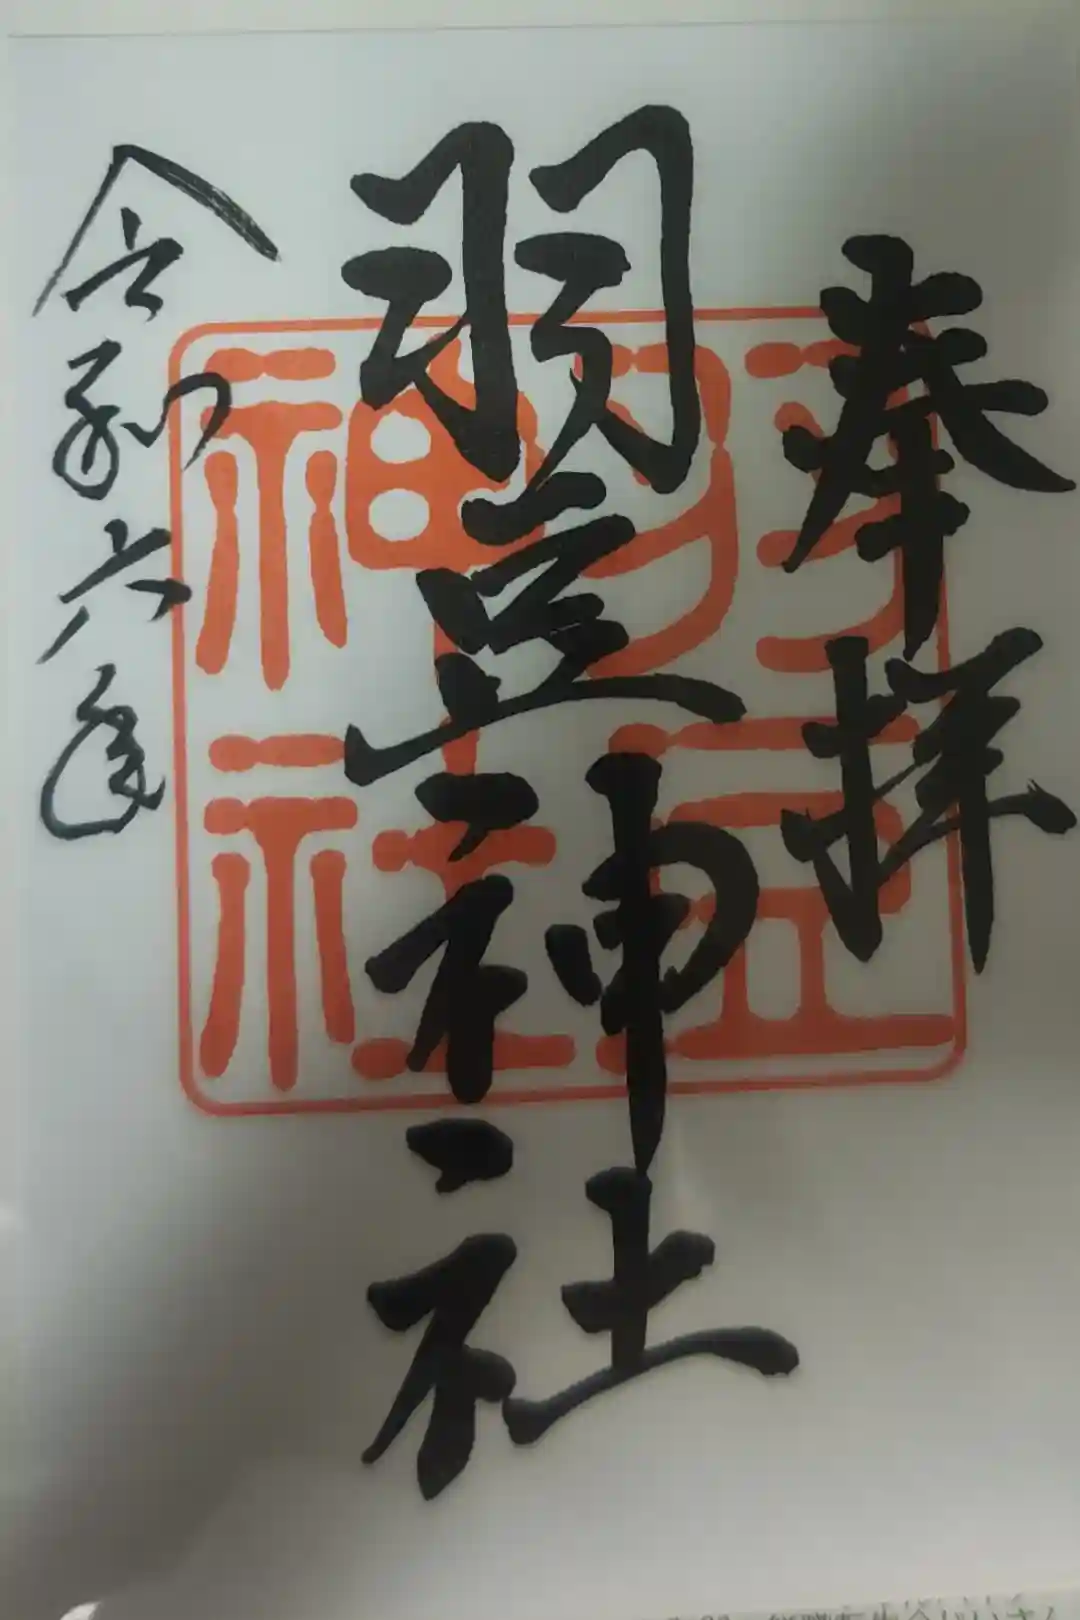 奉拝
羽豆神社
令和六年
羽豆
神社